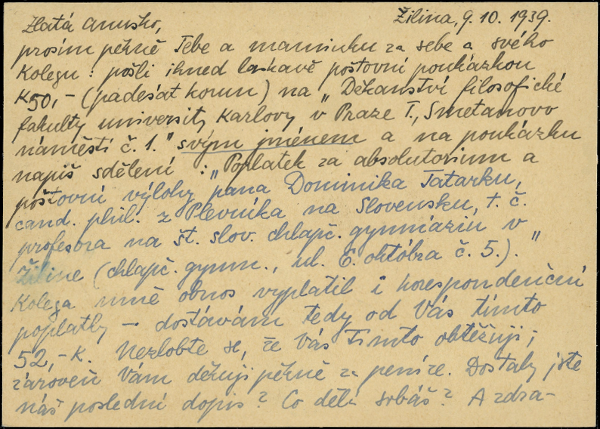 Zlatá Anusko, Žilina, 9. 10. 1939.
prosím pěkně Tebe a maminku za sebe a svého
kolegu: pošli ihned laskavě poštovní poukázkou
K 50,- (padesát korun) na „Děkanství filosofické
fakulty university Karlovy v Praze I., Smetanovo
náměstí č. 1." svým jménem a na poukázku
napiš sdělení: „Poplatek za absolutorium a
poštovní výlohy pana Dominika Tatarku,
cand. phil. z Plevníka na Slovensku, t. č.
profesora na št. slov. chlapč. gymnáziu v
Žilině (chlapč. gymn., ul. 6. októbra č. 5.)."
Kolega mně obnos vyplatil i korespondenční
poplatky – dostávám tedy od Vás tímto
52,- K. Nezlobte se, že Vás tímto obtěžuji;
zároveň Vám děkuji pěkně za peníze. Dostaly jste
náš poslední dopis? Co dělá sobáš? A zdra-